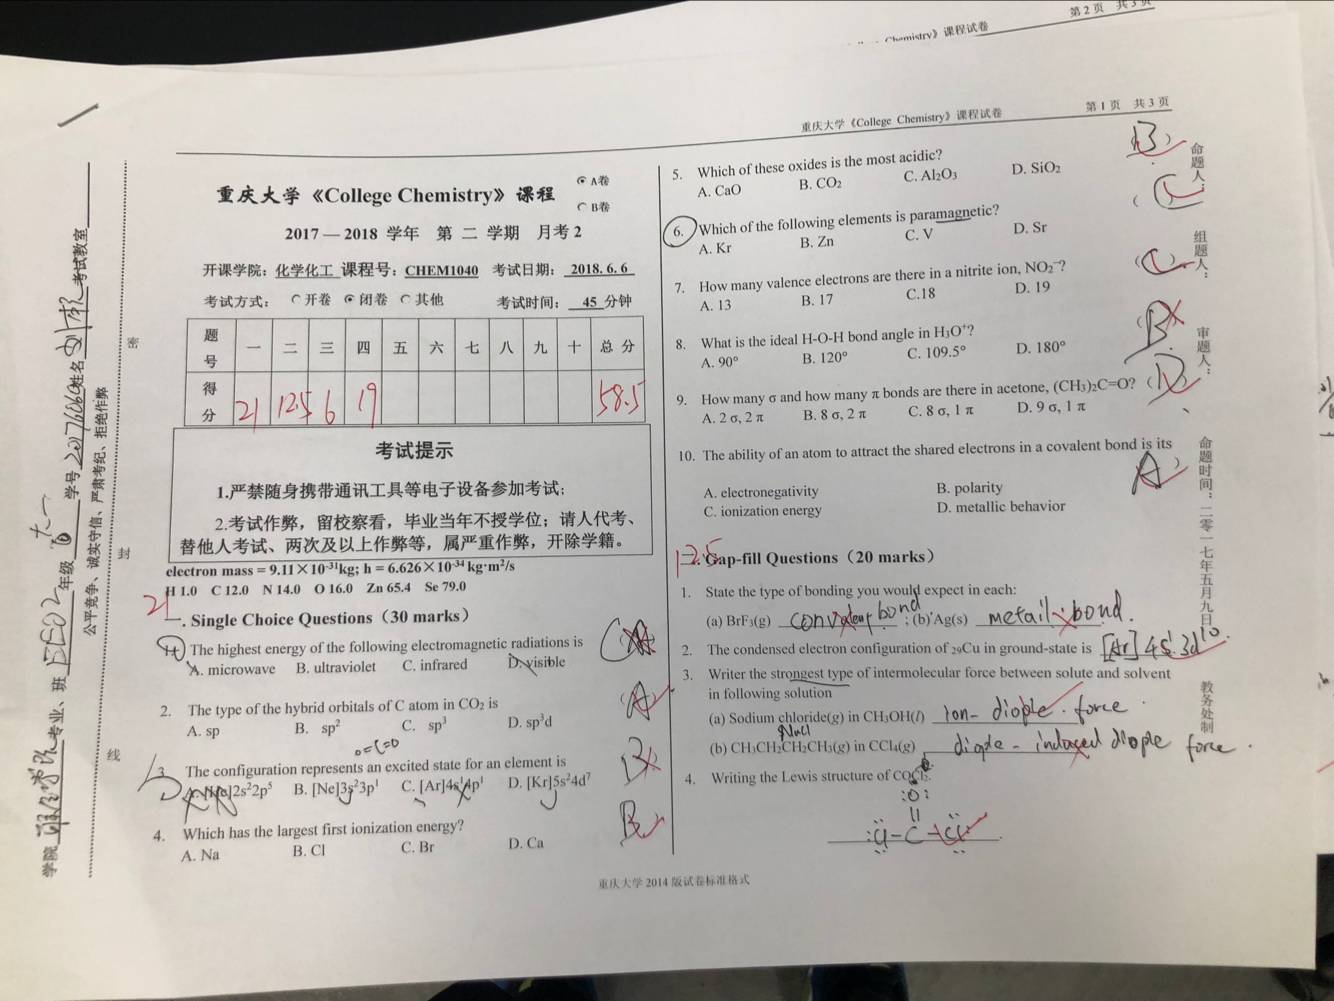 第 2 页 共 3 页
Chemistry》课程试卷
重庆大学《College Chemistry》课程试卷
第 1 页 共 3 页
重庆大学《College Chemistry》课程
A卷
B卷
2017 — 2018 学年 第 二 学期 月考 2
开课学院: 化学化工 课程号: CHEM1040 考试日期: 2018. 6. 6
考试方式: 开卷 闭卷 其他 考试时间: 45 分钟
题号 一 二 三 四 五 六 七 八 九 十 总 分
得分 21 12.5 6 19 58.5
考试提示
1.严禁随身携带通讯工具等电子设备参加考试;
2.考试作弊，留校察看，毕业当年不授学位；请人代考、
替他人考试、两次及以上作弊等，属严重作弊，开除学籍。
electron mass = 9.11×10⁻³¹kg; h = 6.626×10⁻³⁴ kg·m²/s
H 1.0 C 12.0 N 14.0 O 16.0 Zn 65.4 Se 79.0
21
一. Single Choice Questions (30 marks)
The highest energy of the following electromagnetic radiations is
A. microwave B. ultraviolet C. infrared D. visible
2. The type of the hybrid orbitals of C atom in CO₂ is A
A. sp B. sp² C. sp³ D. sp³d
O=C=O
3. The configuration represents an excited state for an element is B
A. [He]2s²2p⁵ B. [Ne]3s²3p¹ C. [Ar]4s¹4p¹ D. [Kr]5s²4d⁷
4. Which has the largest first ionization energy? B
A. Na B. Cl C. Br D. Ca
5. Which of these oxides is the most acidic? (B)
A. CaO B. CO₂ C. Al₂O₃ D. SiO₂
6. Which of the following elements is paramagnetic? (C)
A. Kr B. Zn C. V D. Sr
7. How many valence electrons are there in a nitrite ion, NO₂⁻? (C)
A. 13 B. 17 C.18 D. 19
8. What is the ideal H-O-H bond angle in H₃O⁺? (B)
A. 90° B. 120° C. 109.5° D. 180°
9. How many σ and how many π bonds are there in acetone, (CH₃)₂C=O? (D)
A. 2 σ, 2 π B. 8 σ, 2 π C. 8 σ, 1 π D. 9 σ, 1 π
10. The ability of an atom to attract the shared electrons in a covalent bond is its
A
A. electronegativity B. polarity
C. ionization energy D. metallic behavior
12.5
Gap-fill Questions (20 marks)
1. State the type of bonding you would expect in each:
(a) BrF₃(g) bond ; (b) Ag(s) bond.
2. The condensed electron configuration of ₂₉Cu in ground-state is [Ar] 4s¹ 3d¹⁰.
3. Writer the strongest type of intermolecular force between solute and solvent
in following solution
(a) Sodium chloride(g) in CH₃OH(l) ion- diople force
NaCl
(b) CH₃CH₂CH₂CH₃(g) in CCl₄(g) diople - induced diople force.
4. Writing the Lewis structure of COCl₂.
:O:
||
:Cl-C-Cl:
重庆大学 2014 版试卷标准格式
学院 专业、班 年级 学号 姓名 考试教室
公平竞争、诚实守信、严肃考纪、拒绝作弊
密
封
线
命题人:
组题人:
审题人:
命题时间: 二零一七年五月九日
教务处制